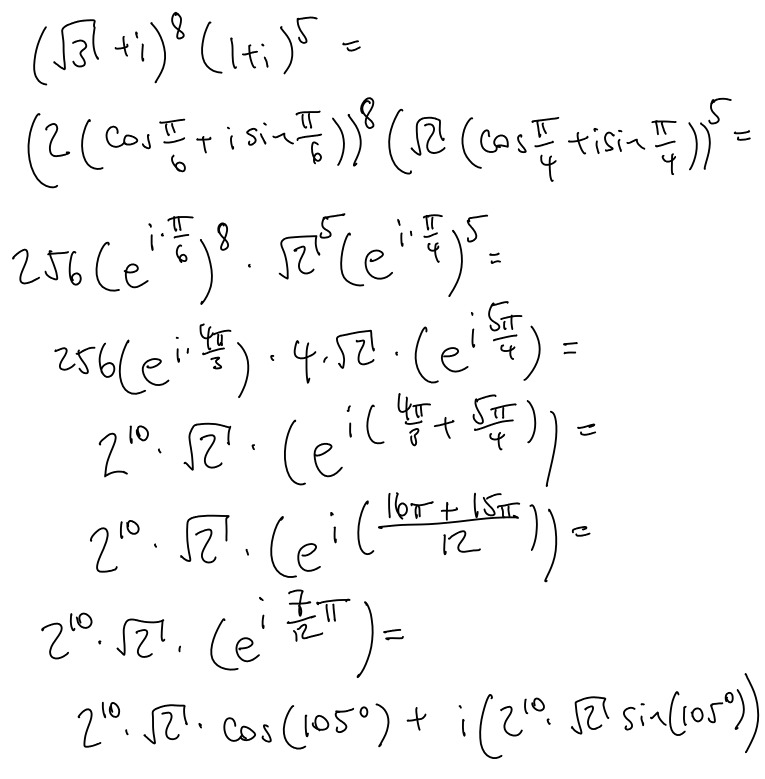 (√3 + i)^8 (1+i)^5 =
(2(cos π/6 + i sin π/6))^8 (√2 (cos π/4 + i sin π/4))^5 =
256(e^(i·π/6))^8 · √2^5 (e^(i·π/4))^5 =
256(e^(i·4π/3)) · 4·√2 · (e^(i 5π/4)) =
2^10 · √2 · (e^(i(4π/3 + 5π/4))) =
2^10 · √2 · (e^(i((16π + 15π)/12))) =
2^10 · √2 · (e^(i 7/12 π)) =
2^10 · √2 · cos(105°) + i(2^10 · √2 sin(105°))